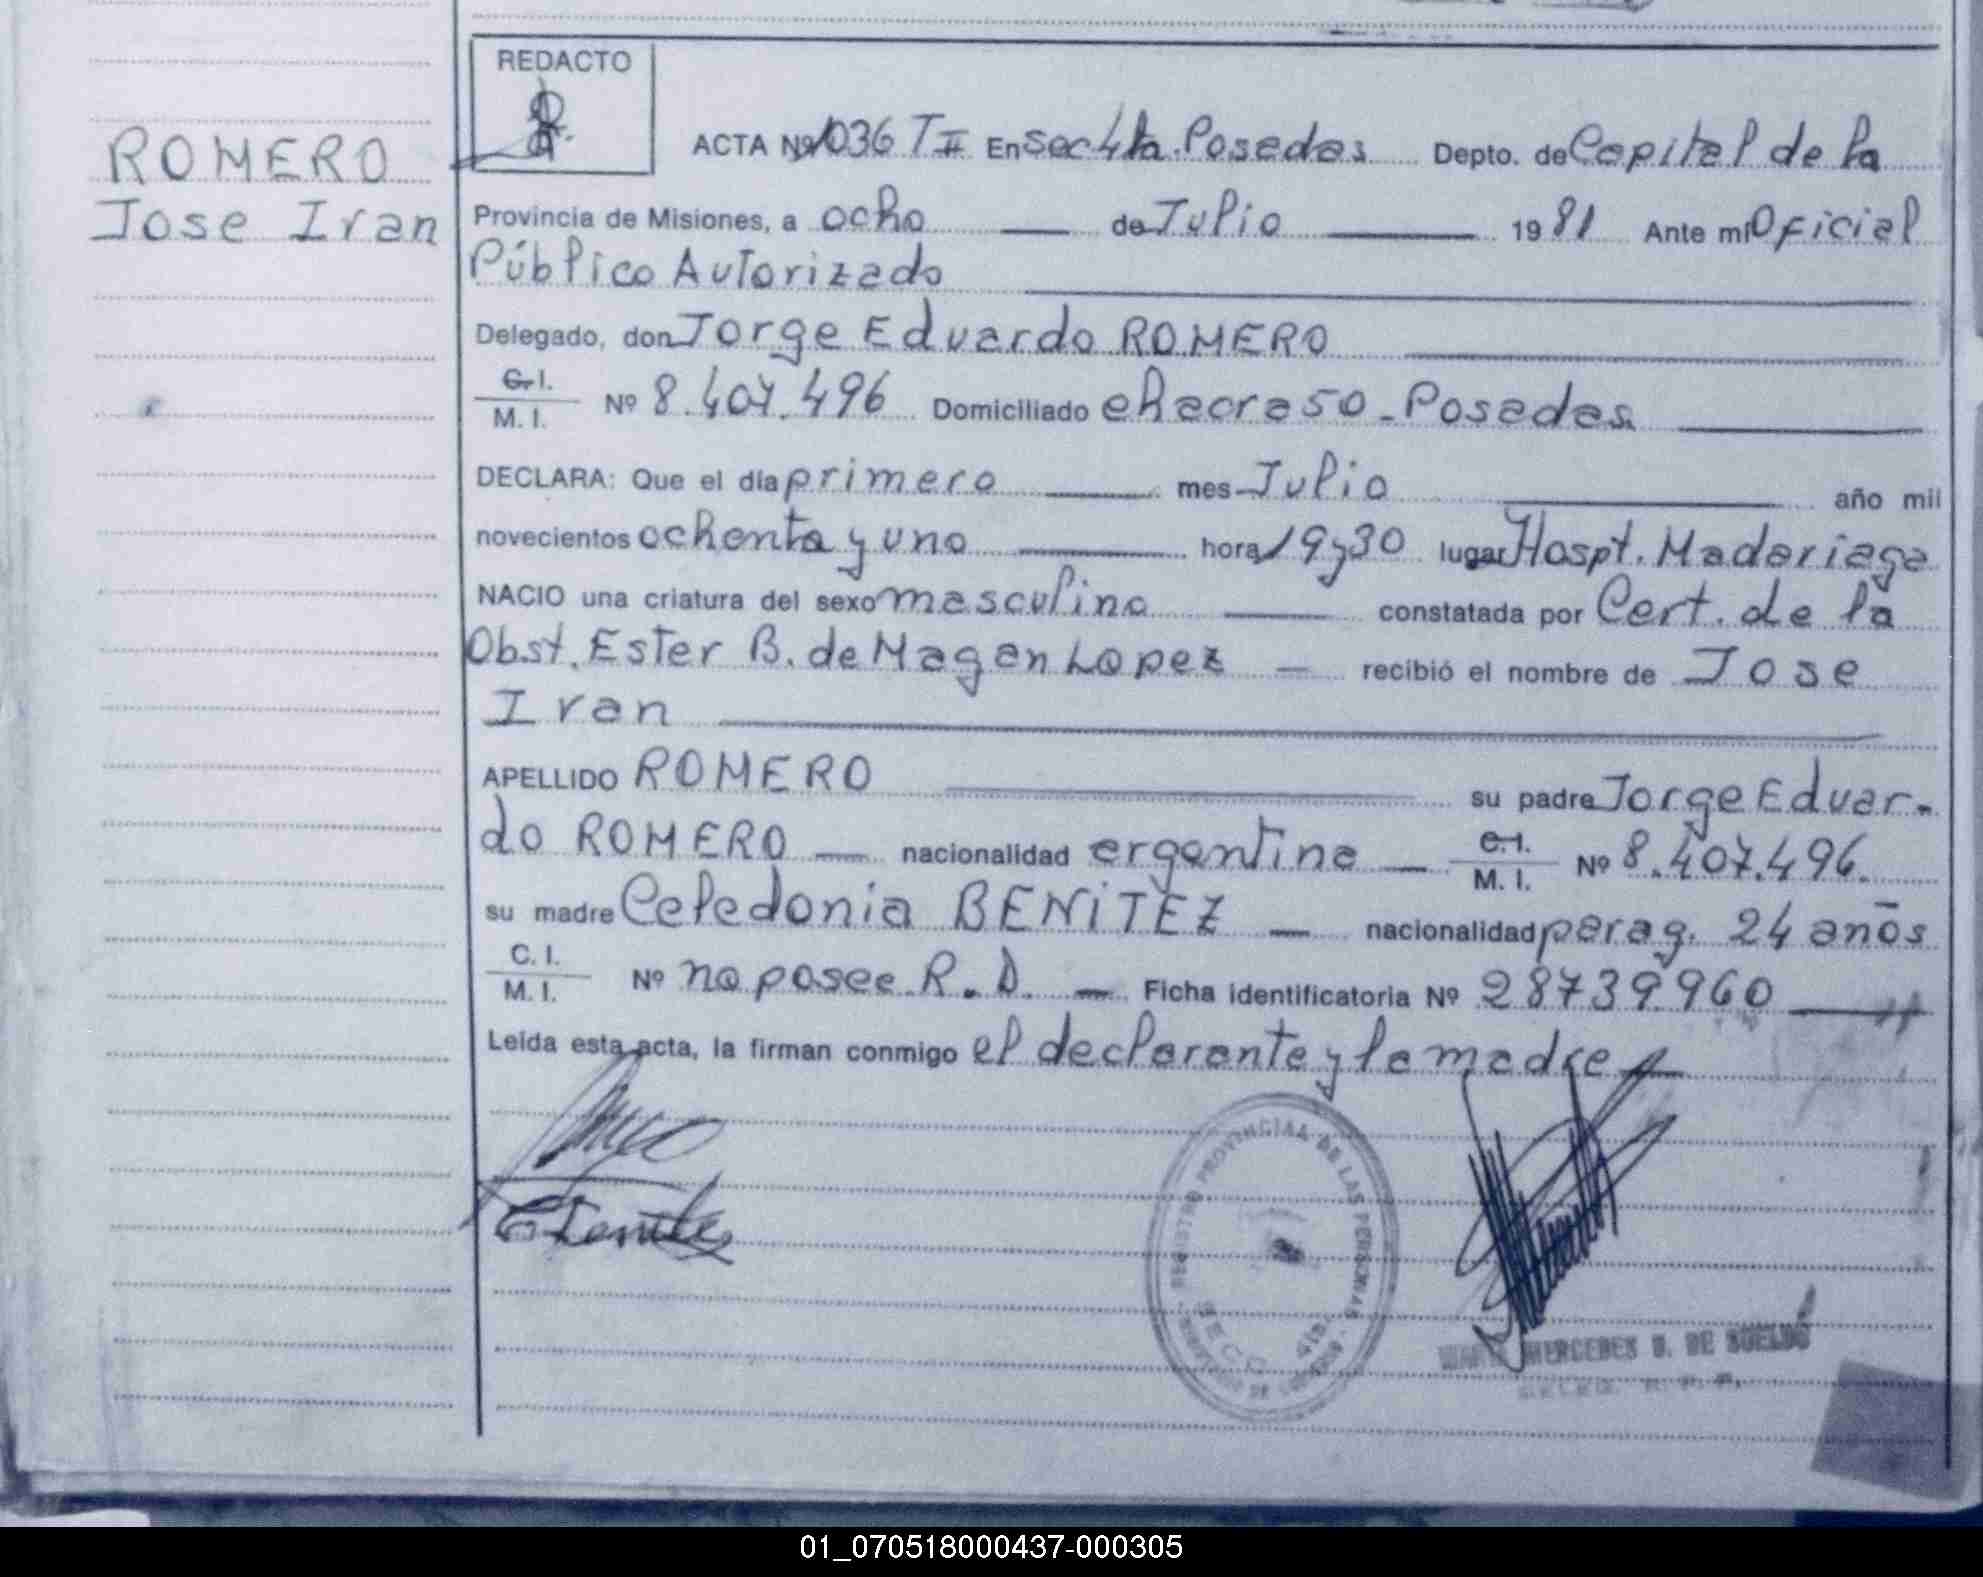 REDACTO
ROMERO
Jose Iran
ACTA Nº 1036 T II En Sec 4ta. Posadas Depto. de Capital de la
Provincia de Misiones, a ocho de Julio 1981 Ante mi Oficial
Público Autorizado
Delegado, don Jorge Eduardo ROMERO
C.I. M.I. Nº 8.407.496 Domiciliado chacra 50 - Posadas
DECLARA: Que el día primero mes Julio año mil
novecientos ochenta y uno hora 19 y 30 lugar Hospt. Madariaga
NACIO una criatura del sexo masculino constatada por Cert. de la
Obst. Ester B. de Magan Lopez — recibió el nombre de Jose
Iran
APELLIDO ROMERO su padre Jorge Eduar-
do ROMERO — nacionalidad argentina — C.I. M.I. Nº 8.407.496.
su madre Celedonia BENITEZ — nacionalidad parag. 24 años
C.I. M.I. Nº no posee R.D. — Ficha identificatoria Nº 28739960
Leída esta acta, la firman conmigo el declarante y la madre
REGISTRO PROVINCIAL DE LAS PERSONAS
SECC. 4ta.
MERCEDES B. DE SUELDO
01_070518000437-000305